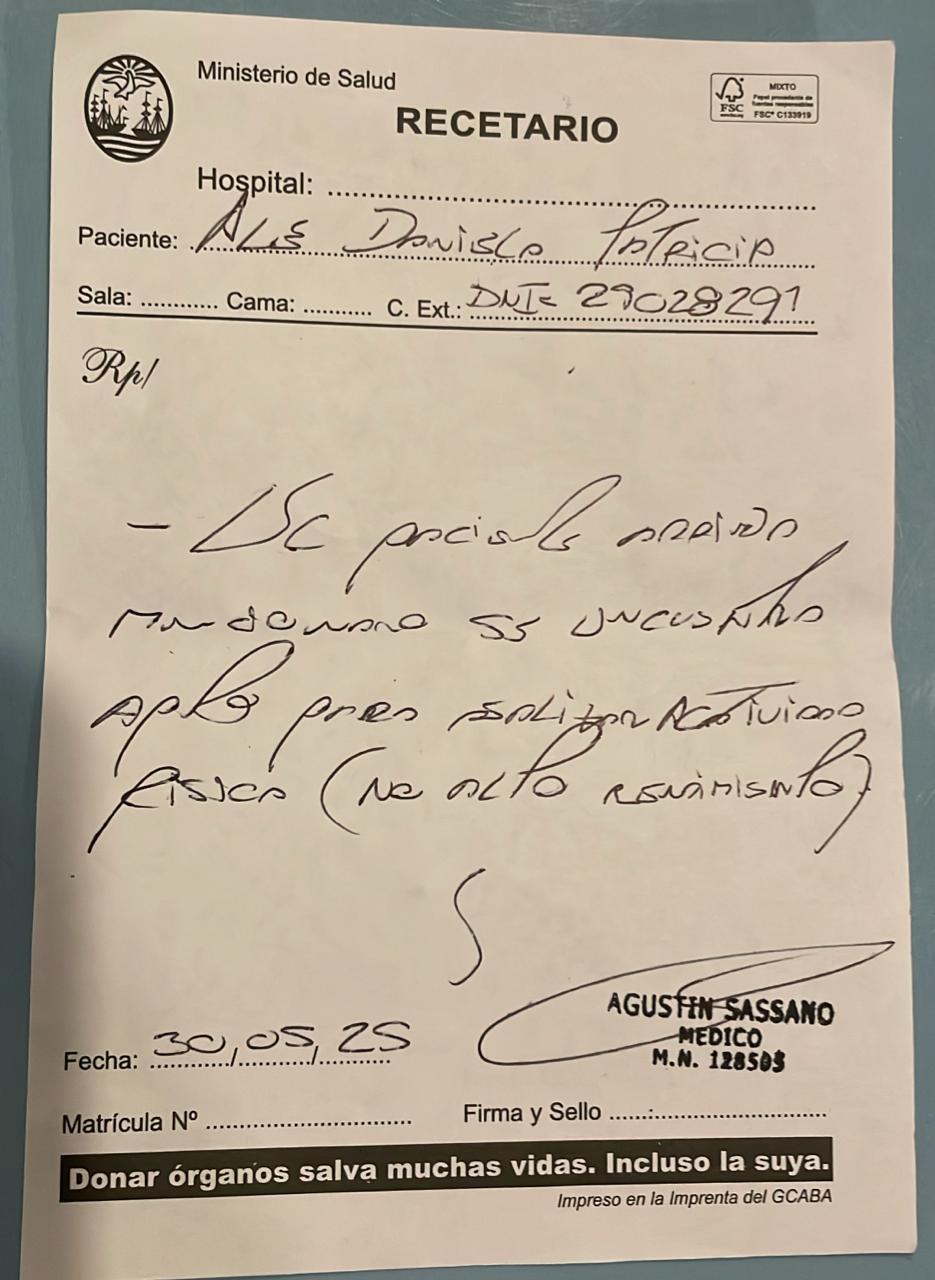 Ministerio de Salud
RECETARIO
FSC
MIXTO
Papel procedente de
fuentes responsables
FSC® C133919
Hospital:
Paciente: Ale Daniela Patricia
Sala: Cama: C. Ext.: DNI= 29028291
Rp/
- La paciente arriba
mencionada se encuentra
apta para realizar actividad
física (no alto rendimiento)
Fecha: 30/05/25
AGUSTIN SASSANO
MEDICO
M.N. 128503
Matrícula Nº
Firma y Sello
Donar órganos salva muchas vidas. Incluso la suya.
Impreso en la Imprenta del GCABA